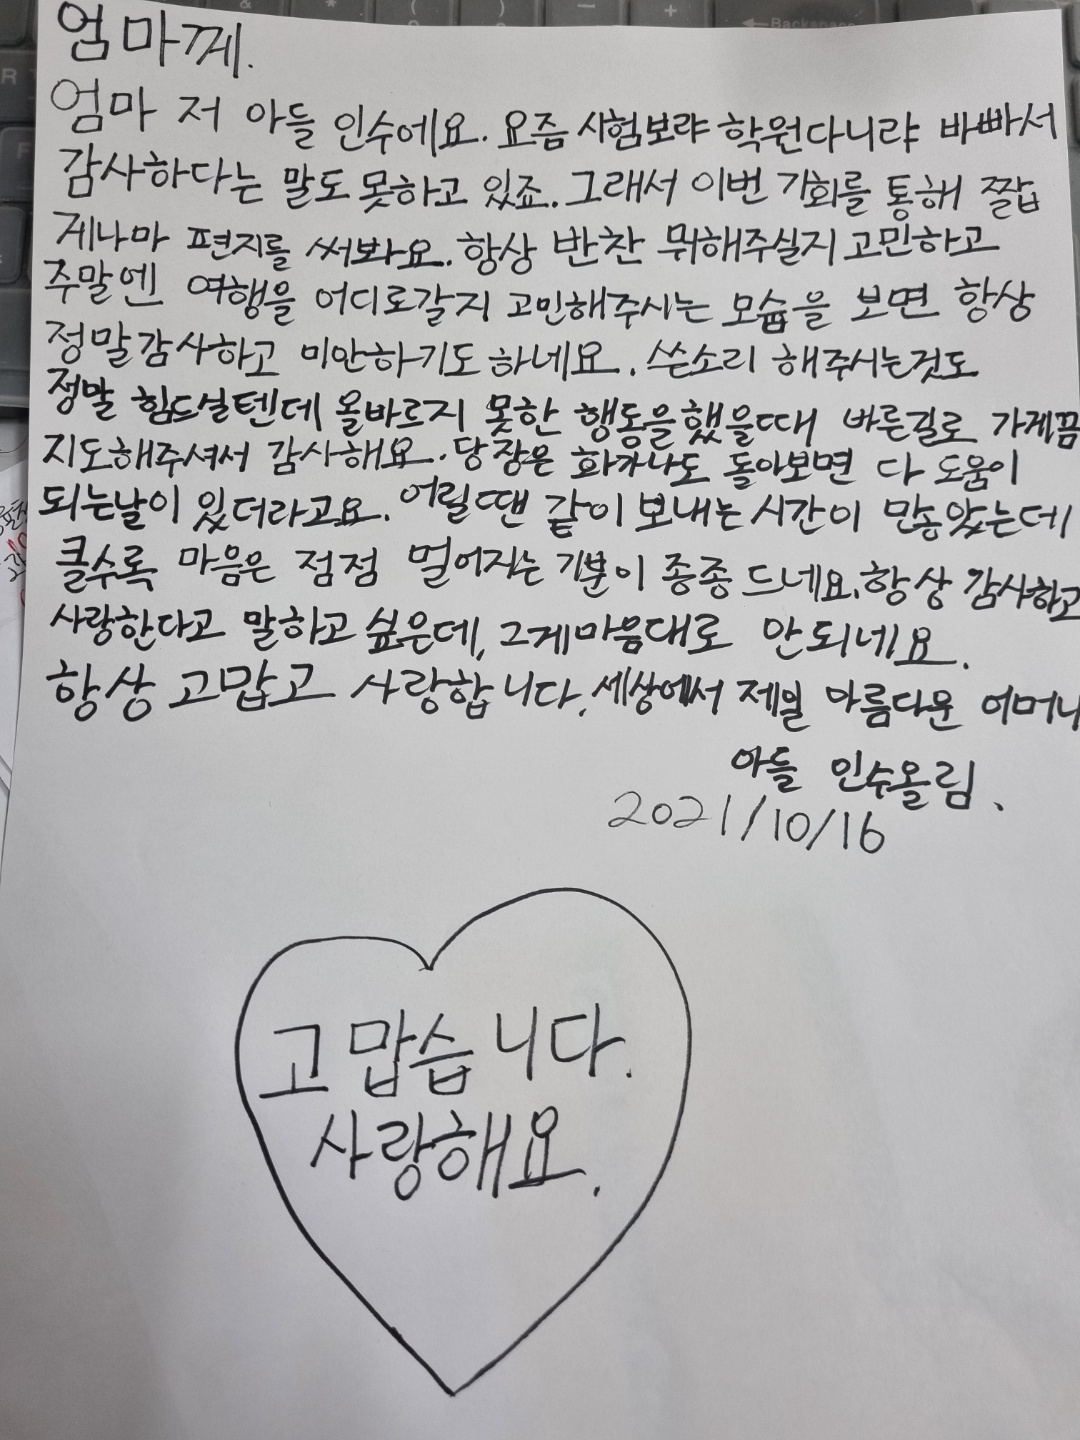 엄마께.
엄마 저 아들 인수에요. 요즘 시험보랴 학원다니랴 바빠서
감사하다는 말도 못하고 있죠. 그래서 이번 기회를 통해 짧
게나마 편지를 써봐요. 항상 반찬 뭐해주실지 고민하고
주말엔 여행을 어디로갈지 고민해주시는 모습을 보면 항상
정말감사하고 미안하기도 하네요. 쓴소리 해주시는것도
정말 힘드실텐데 올바르지 못한 행동을했을때 바른길로 가게끔
지도해주셔서 감사해요. 당장은 화가나도 돌아보면 다 도움이
되는날이 있더라고요. 어릴땐 같이 보내는 시간이 많았는데
클수록 마음은 점점 멀어지는 기분이 종종 드네요. 항상 감사하고
사랑한다고 말하고 싶은데, 그게마음대로 안되네요.
항상 고맙고 사랑합니다. 세상에서 제일 아름다운 어머니
아들 인수올림.
2021/10/16
고맙습니다.
사랑해요.
Backspace